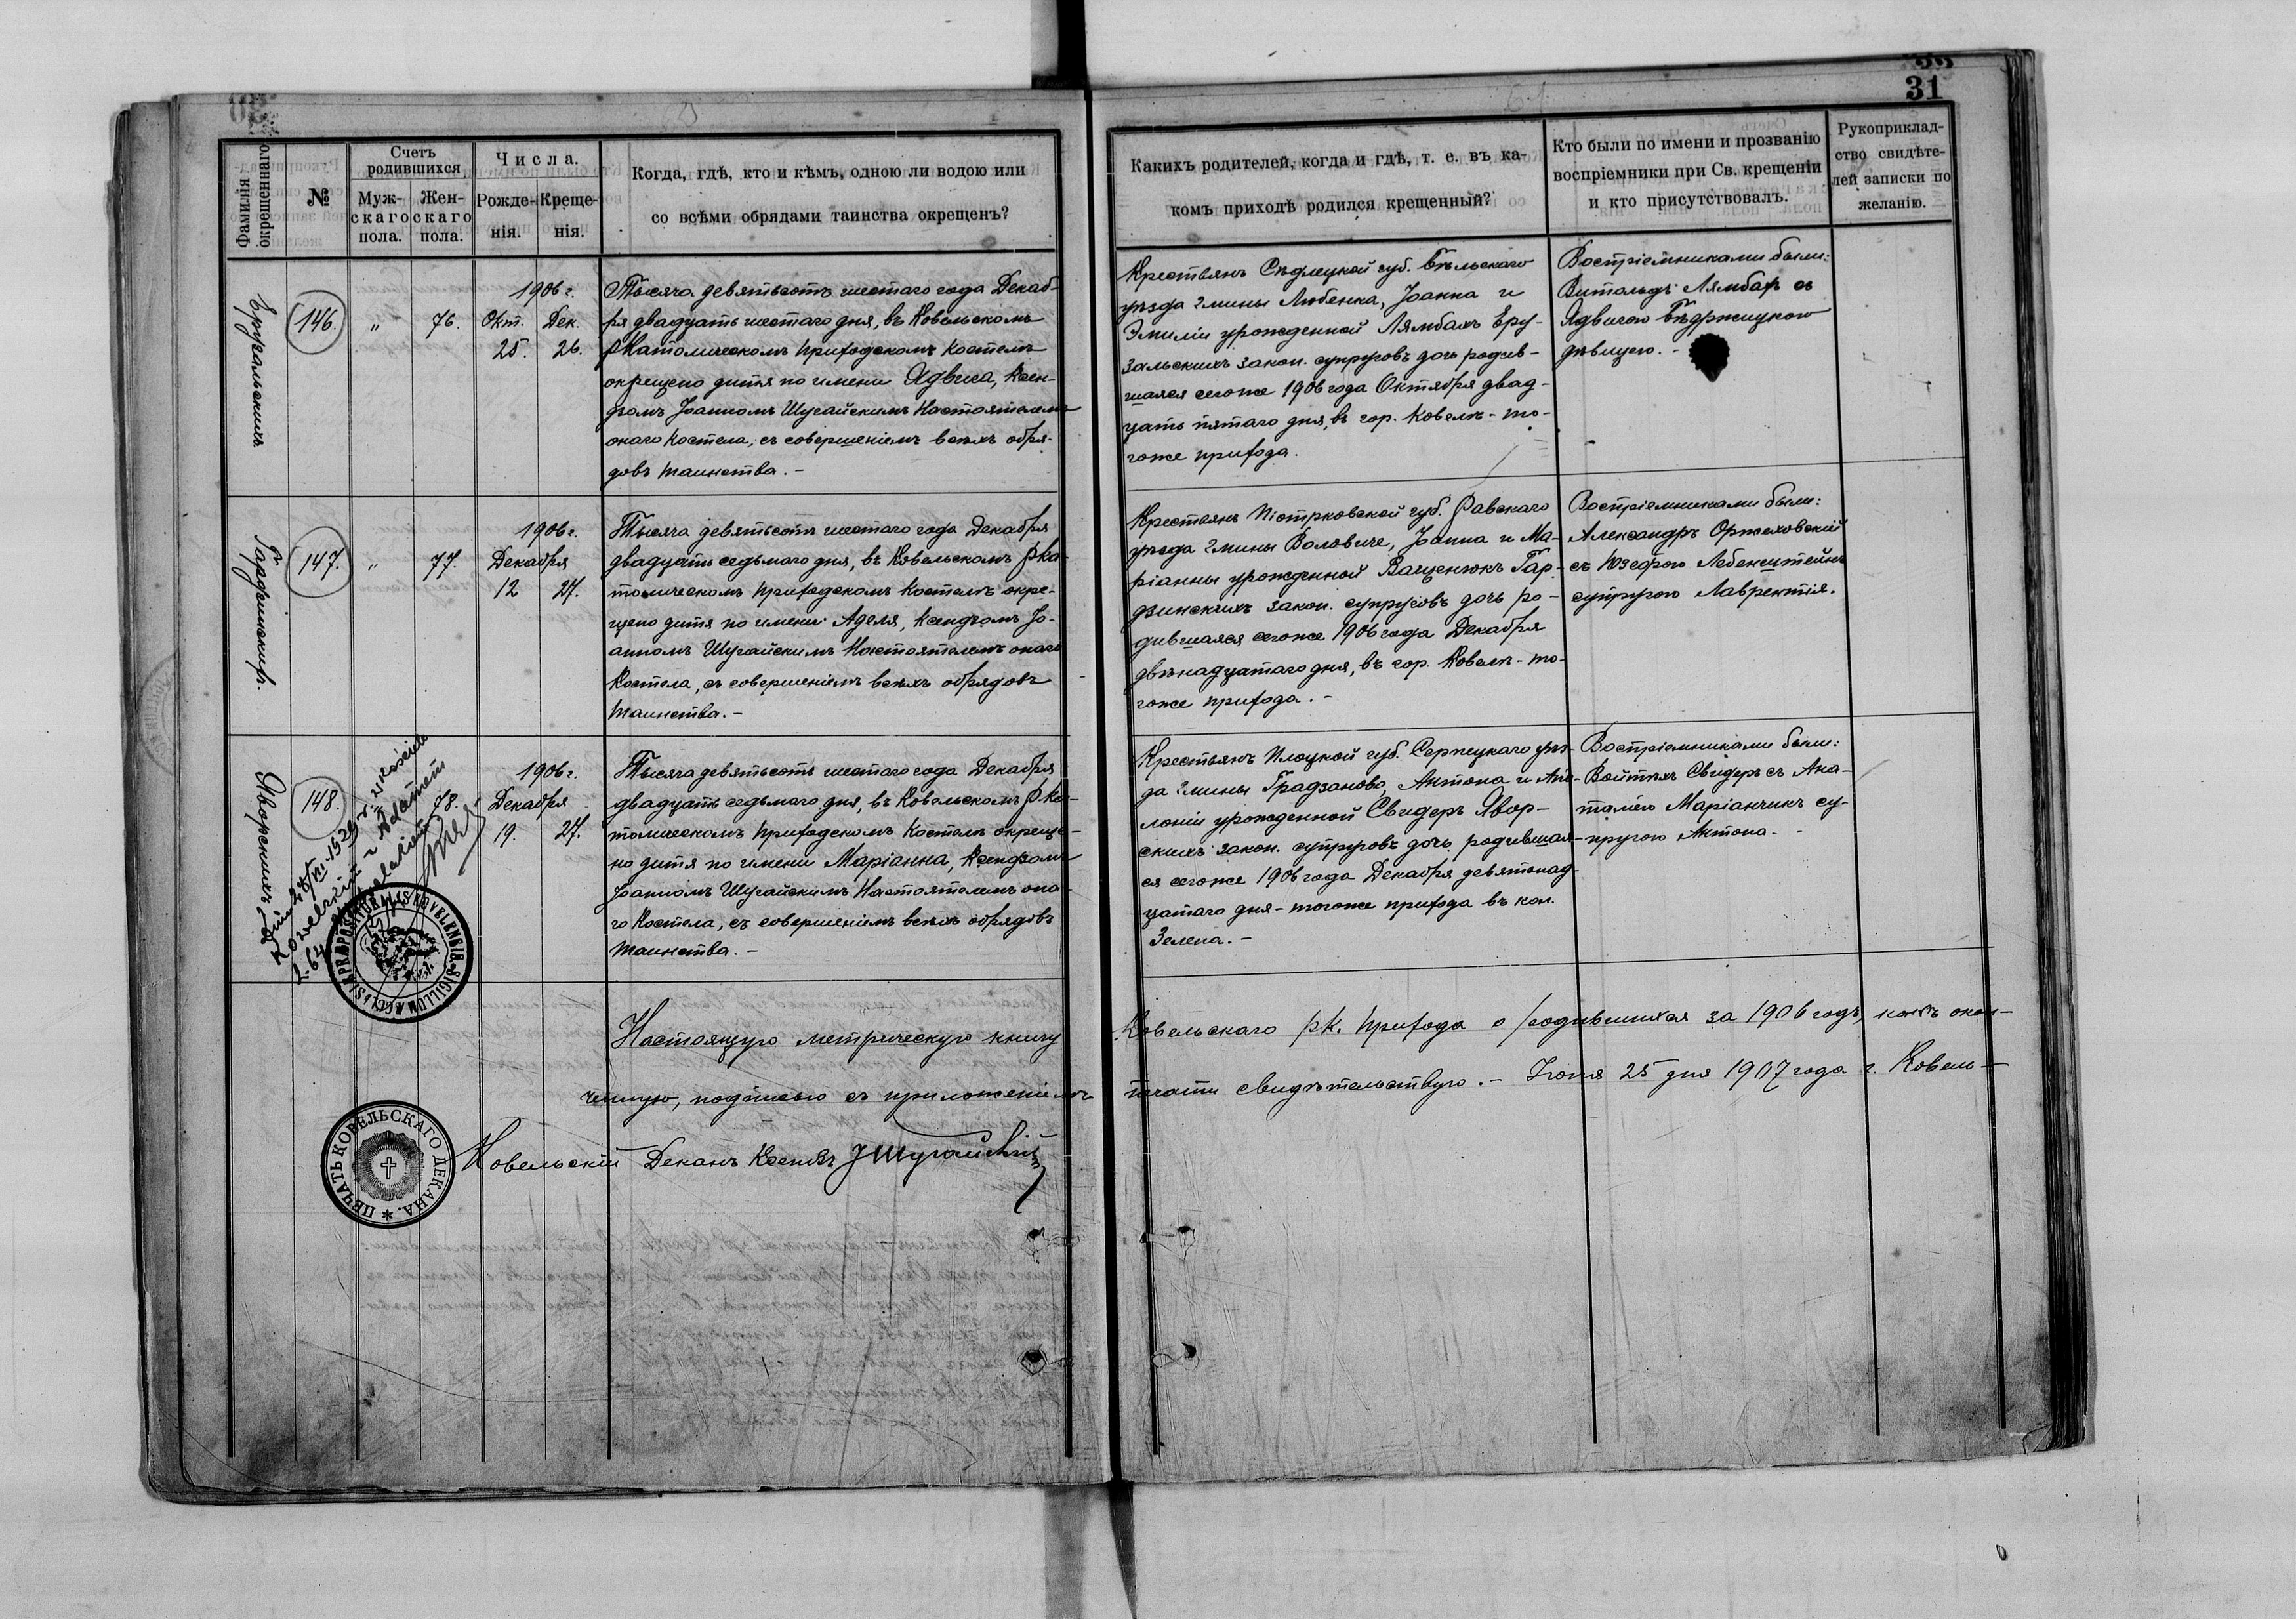 31
Фамилія окрещеннаго.
№
Счетъ родившихся
Муж-
скаго
пола.
Жен-
скаго
пола.
Числа.
Рожде-
нія.
Креще-
нія.
Когда, гдѣ, кто и кѣмъ, одною ли водою или
со всѣми обрядами таинства окрещенъ?
Какихъ родителей, когда и гдѣ, т. е. въ ка-
комъ приходѣ родился крещенный?
Кто были по имени и прозванію
воспріемники при Св. крещеніи
и кто присутствовалъ.
Рукоприклад-
ство свидѣте-
лей записки по
желанію.
Ерузальскихъ
146.
"
76.
1906 г.
Окт. Дек.
25. 26.
Тысяча девятьсотъ шестаго года Декаб-
ря двадцать шестаго дня, въ Ковельскомъ
рКатолическомъ приходскомъ Костелѣ
окрещено дитя по имени Ядвига, Ксен-
дзомъ Іоанномъ Шугайскимъ Настоятелемъ
онаго Костела, съ совершеніемъ всѣхъ обря-
довъ таинства. –
Крестьянъ Сѣдлецкой губ. Бѣльскаго
уѣзда гмины Любенка, Іоанна и
Эмиліи урожденной Лямбахъ Еру-
зальскихъ закон. супруговъ дочь родив-
шаяся сегоже 1906 года Октября двад-
цать пятаго дня, въ гор. Ковелѣ - то-
гоже прихода.
Воспріемниками были:
Витольдъ Лямбах съ
Ядвигою Бѣдржицкою
дѣвицею. -
Гардзинскихъ.
147.
"
77.
1906 г.
Декабря
12 27.
Тысяча девятьсотъ шестаго года Декабря
двадцать седьмаго дня, въ Ковельскомъ рка-
толическомъ приходскомъ Костелѣ окре-
щено дитя по имени Аделя, Ксендзомъ Іо-
анномъ Шугайскимъ Настоятелемъ онаго
Костела, съ совершеніемъ всѣхъ обрядовъ
таинства. –
Крестьянъ Піотрковской губ. Равскаго
уѣзда гмины Валовиче, Іоанна и Ма-
ріанны урожденной Ващенюкъ Гар-
дзинскихъ закон. супруговъ дочь ро-
дившаяся сегоже 1906 года Декабря
двѣнадцатаго дня, въ гор. Ковелѣ - то-
гоже прихода. –
Воспріемниками были:
Александръ Оржеховскій
съ Юзефою Лебенштейнъ
супругою Лаврентія.
Яворскихъ
148.
"
78.
1906 г.
Декабря
19. 27.
Тысяча девятьсотъ шестаго года Декабря
двадцать седьмаго дня, въ Ковельскомъ рка-
толическомъ приходскомъ Костелѣ окреще-
но дитя по имени Маріанна, Ксендзомъ
Іоанномъ Шугайскимъ Настоятелемъ она-
го Костела, съ совершеніемъ всѣхъ обрядовъ
таинства. –
Крестьянъ Плоцкой губ. Серпецкаго уѣз-
да гмины Градзаново, Антона и Апо-
лоніи урожденной Свидеръ Явор-
скихъ закон. супруговъ дочь родившая-
ся сегоже 1906 года Декабря девятонад-
цатаго дня - тогоже прихода въ кол.
Зелена. –
Воспріемниками были:
Войтѣхъ Свидеръ съ Ана-
таліею Маріанчикъ су-
пругою Антона. -
w kościele
Kowelskim z Adamem
Настоящую метрическую книгу Ковельскаго рк. прихода о родившихся за 1906 годъ, какъ окон-
ченную, подписью съ приложеніемъ печати свидѣтельствую. – Іюня 25 дня 1907 года г. Ковель –
Ковельскій Деканъ Ксендзъ ІШугайскій
ПЕЧАТЬ КОВЕЛЬСКАГО ДЕКАНА.